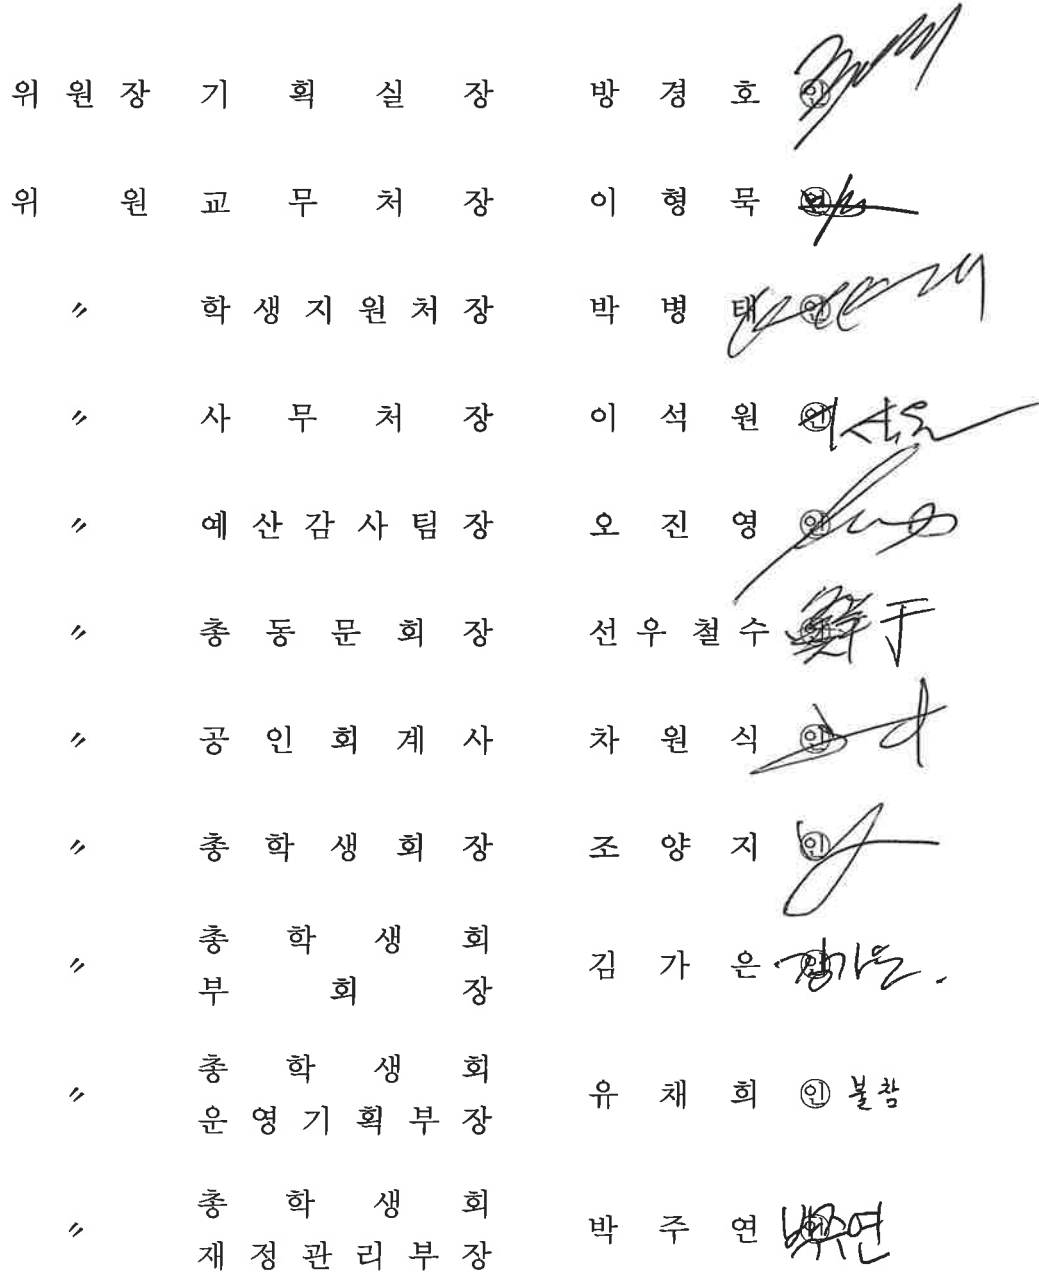 위 원 장 기 획 실 장 방 경 호 ㊞
위 원 교 무 처 장 이 형 묵 ㊞
〃 학 생 지 원 처 장 박 병 태 ㊞
〃 사 무 처 장 이 석 원 ㊞ 이석원
〃 예 산 감 사 팀 장 오 진 영 ㊞
〃 총 동 문 회 장 선 우 철 수 ㊞ 鮮于
〃 공 인 회 계 사 차 원 식 ㊞
〃 총 학 생 회 장 조 양 지 ㊞
〃 총 학 생 회
부 회 장 김 가 은 ㊞ 김가은.
〃 총 학 생 회
운 영 기 획 부 장 유 채 희 ㊞ 불참
〃 총 학 생 회
재 정 관 리 부 장 박 주 연 ㊞ 박주연